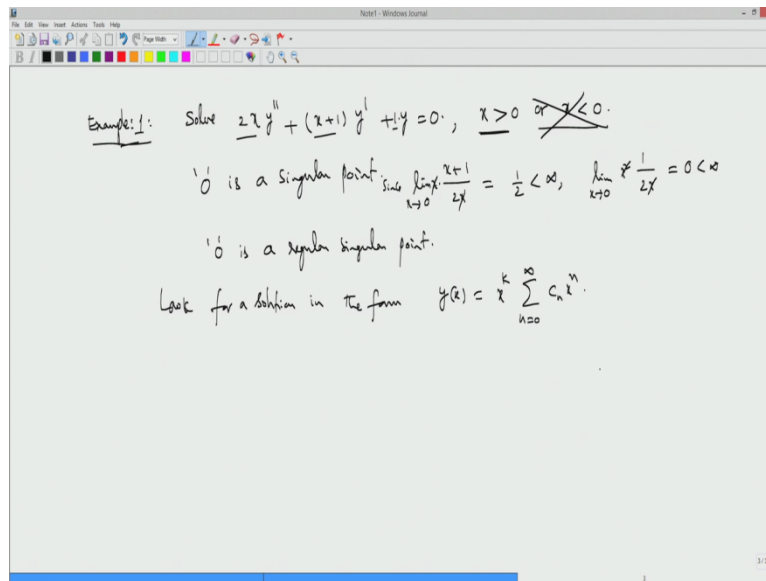 Note1 - Windows Journal
File Edit View Insert Actions Tools Help
Page Width
B I
Example: 1: Solve 2x y'' + (x+1) y' + 1·y = 0. , x > 0 or x < 0.
'0' is a singular point. Since lim x→0 x · (x+1)/(2x) = 1/2 < ∞, lim x→0 x² 1/(2x) = 0 < ∞
'0' is a regular singular point.
Look for a solution in the form y(x) = x^k ∑_{n=0}^{∞} c_n x^n.